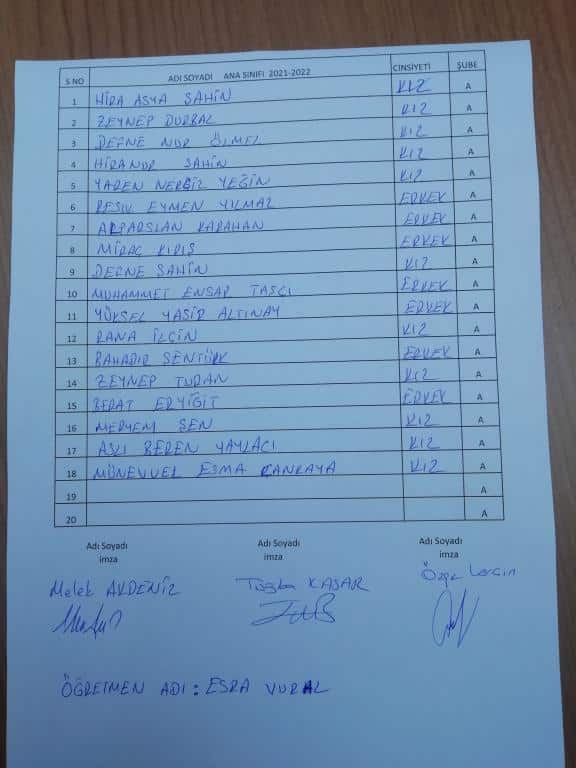 S.NO ADI SOYADI ANA SINIFI 2021-2022 CİNSİYETİ ŞUBE
1 HİRA ASYA ŞAHİN KIZ A
2 ZEYNEP DURBAL KIZ A
3 DEFNE NUR ÖLMEZ KIZ A
4 HİRANUR ŞAHİN KIZ A
5 YAREN NERGİZ YEĞİN KIZ A
6 EYMEN YILMAZ ERKEK A
7 ALPARSLAN KARAHAN ERKEK A
8 MİRAÇ KIRIŞ ERKEK A
9 DEFNE ŞAHİN KIZ A
10 MUHAMMET ENSAR TAŞÇI ERKEK A
11 YÜKSEL YASİR ALTINAY ERKEK A
12 RANA İLGİN KIZ A
13 BAHADIR ŞENTÜRK ERKEK A
14 ZEYNEP TURAN KIZ A
15 BERAT ERYİĞİT ERKEK A
16 MERYEM ŞEN KIZ A
17 ASLI BEREN YAYLACI KIZ A
18 MÜNEVVEL ESMA ÇANKAYA KIZ A
19 A
20 A
Adı Soyadı Adı Soyadı Adı Soyadı
imza imza imza
Melek AKDENİZ Tuğba KAŞAR Özge
ÖĞRETMEN ADI : ESRA VURAL